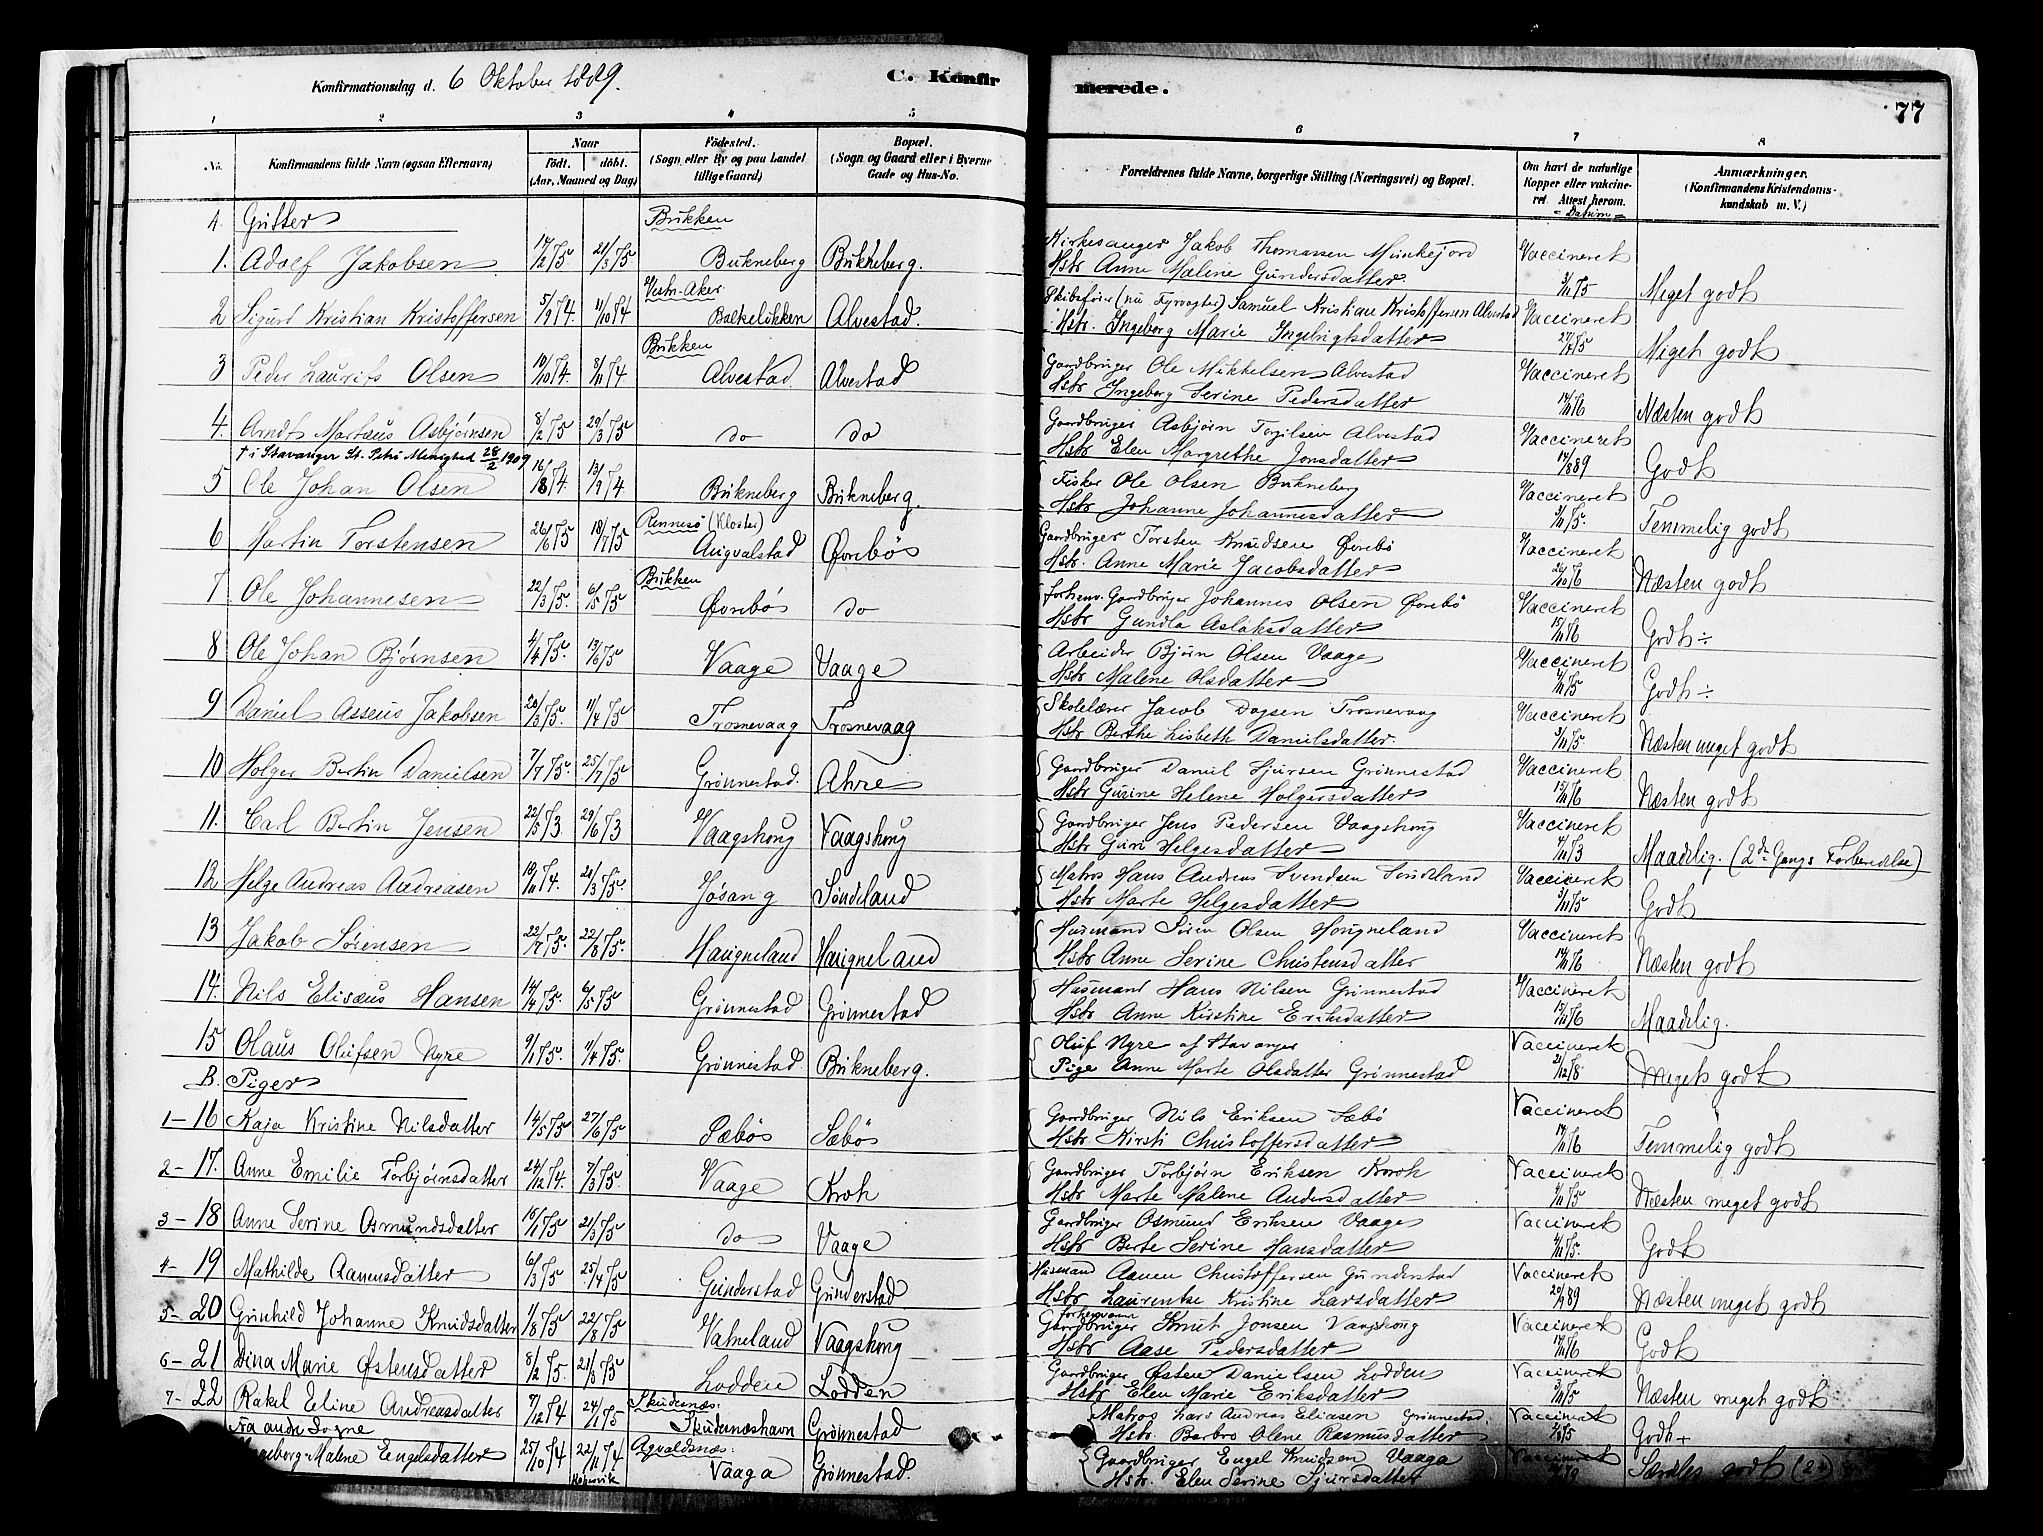 Konfirmationsdag d. 6 Oktober 1889. C. Konfir
merede. 77
1 2 3 4 5 6 7 8
No. Konfirmandens fulde Navn (ogsaa Efternavn) Naar født. døbt. (Aar, Maaned og Dag) Fødested. (Sogn eller By og paa Landet tillige Gaard) Bopæl. (Sogn og Gaard eller i Byerne Gade og Hus-No. Forældrenes fulde Navne, borgerlige Stilling (Næringsvei) og Bopæl. Om havt de naturlige Kopper eller vakcineret. Attest herom. = Datum = Anmærkninger. (Konfirmandens Kristendomskundskab m. V.)
A. Gutter Bukken
1. Adolf Jakobsen 17/2 75 21/3 75 Bukneberg Bukneberg. Kirkesanger Jakob Thomassen Munkejord Vaccineret
Hstr Anne Malene Gundersdatter. 3/11 75 Meget godt
Vestr-Aker
2 Sigurd Kristian Kristoffersen 5/9 74. 11/10 74 Balkeløkken Alvestad. Skibsfører (nu Fyrvogter) Samuel Kristian Kristoffersen Alvestad Vaccineret
Hstr. Ingeborg Marie Ingebrigtsdatter 75 Meget godt
Bukken
3 Peder Laurits Olsen 10/10 74. 8/11 74 Alvestad Alvestad Gaardbruger Ole Mikkelsen Alvestad Vaccineret
Hstr Ingeborg Serine Pedersdatter 14/11 76 Næsten godt
4. Arndt Martæus Asbjørnsen 8/2 75 29/3 75 do do Gaardbruger Asbjørn Torgilsen Alvestad Vaccineret
† i Stavanger St. Petri Menighed 28/2 1909 Hstr Elen Margrethe Jonsdatter 17/8 89 Godt
5 Ole Johan Olsen 16/8 74. 13/9 74 Bukneberg Bukneberg. Fisker Ole Olsen Bukneberg Vaccineret
Hstr Johanne Johannesdatter 3/11 75. Temmelig godt
Rennesø (Kloster)
6 Martin Torstensen 26/6 75 18/7 75 Augvalstad Øvrebø Gaardbruger Torsten Knudsen Øvrebø Vaccineret
Hstr. Anne Marie Jacobsdatter 76 Næsten godt
Bukken
7 Ole Johannesen 22/3 75. 6/5 75 Øvrebø do forhenv. Gaardbruger Johannes Olsen Øvrebø Vaccineret
Hstr Gundla Aslaksdatter 15/11 76 Godt ÷
8 Ole Johan Bjørnsen 4/4 75. 13/6 75 Vaage Vaage Arbeider Bjørn Olsen Vaage Vaccineret
Hstr Malene Olsdatter 75 Godt ÷
9 Daniel Asseus Jakobsen 20/3 75. 11/4 75 Trosnevaag Trosnevaag Skolelærer Jacob Dagsen Trosnevaag Vaccineret
Hstr Berthe Lisbeth Danielsdatter. 3/11 75. Næsten meget godt
10 Holger Bertin Danielsen 7/7 75. 25/7 75 Grønnestad. Ahre Gaardbruger Daniel Sjursen Grønnestad Vaccineret
Hstr Gurine Helene Holgersdatter 15/11 76 Næsten godt
11. Carl Bertin Jensen 22/5 73. 29/6 73 Vaagshoug Vaagshoug Gaardbruger Jens Pedersen Vaagshoug Vaccineret
Hstr Guri Helgesdatter 73 Maadelig. (2de Gangs Forberedelse)
12 Helge Andreas Andreasen 10/11 74. 21/3 75. Jøsang Søndeland Matros Hans Andreas Svendsen Sundland Vaccineret
Hstr Marte Helgesdatter 3/11 75 Godt
13 Jakob Sørensen 22/7 75. 22/8 75. Haugneland Haugneland Husmand Søren Olsen Hougneland Vaccineret
Hstr Anne Serine Christensdatter 14/11 76 Næsten godt
14. Nils Elisæus Hansen 14/4 75. 6/5 75 Grønnestad Grønnestad Husmand Hans Nilsen Grønnestad Vaccineret
Hstr Anne Kirstine Eriksdatter 76 Maadelig.
15 Olaus Olufsen Nyre 9/1 75. 11/4 75. Grønnestad Bukneberg. Oluf Nyre af Stavanger Vaccineret
Pige Anne Marte Olsdatter Grønnestad 21/12 78 Meget godt
B. Piger
1-16 Kaja Kristine Nilsdatter 14/5 75 27/6 75 Sæbø Sæbø Gaardbruger Nils Eriksen Sæbø Vaccineret
Hstr Kirsti Christoffersdatter 14/11 76 Temmelig godt
2-17. Anne Emilie Torbjørnsdatter 24/12 74. 7/3 75. Vaage Kroh Gaardbruger Torbjørn Eriksen Kroh Vaccineret
Hstr Marte Malene Andersdatter 75 Næsten meget godt
3-18 Anne Serine Osmundsdatter 16/1 75 21/3 75 do Vaage Gaardbruger Osmund Eriksen Vaage Vaccineret
Hstr Berte Serine Hansdatter 75. Godt
4-19 Mathilde Aanensdatter 6/3 75 25/4 75 Gunderstad Gunderstad Husmand Aanen Christoffersen Gunderstad Vaccineret
Hstr Laurentse Kristine Larsdatter 89 Næsten meget godt
5-20 Gunhild Johanne Knudsdatter 1/8 75 22/8 75 Vatneland Vaagshoug forhenværende Gaardbruger Knut Jonsen Vaagshoug Vaccineret
Hstr Aase Pedersdatter 76 Godt
6-21 Dina Marie Østensdatter 8/2 75. 21/3 75 Lodden Lodden Gaardbruger Østen Danielsen Lodden Vaccineret
Hstr Elen Marie Eriksdatter 3/11 75 Næsten meget godt
Skudenæs:
7-22 Rakel Eline Andreasdatter 7/12 74 24/1 75 Skudenæshavn Grønnestad Matros Lars Andreas Eliasen Grønnestad. Vaccineret
Fra andre Sogne Hstr Barbro Olene Rasmusdatter 75 Godt +
Agvaldsnæs:
Ingeborg Malene Engelsdatter 25/10 74 22/11 74 Kopervik Vaaga Grønnestad. Gaardbruger Engel Knudsen Vaaga Vaccineret
Hstr. Elen Serine Sjursdatter Særdeles godt